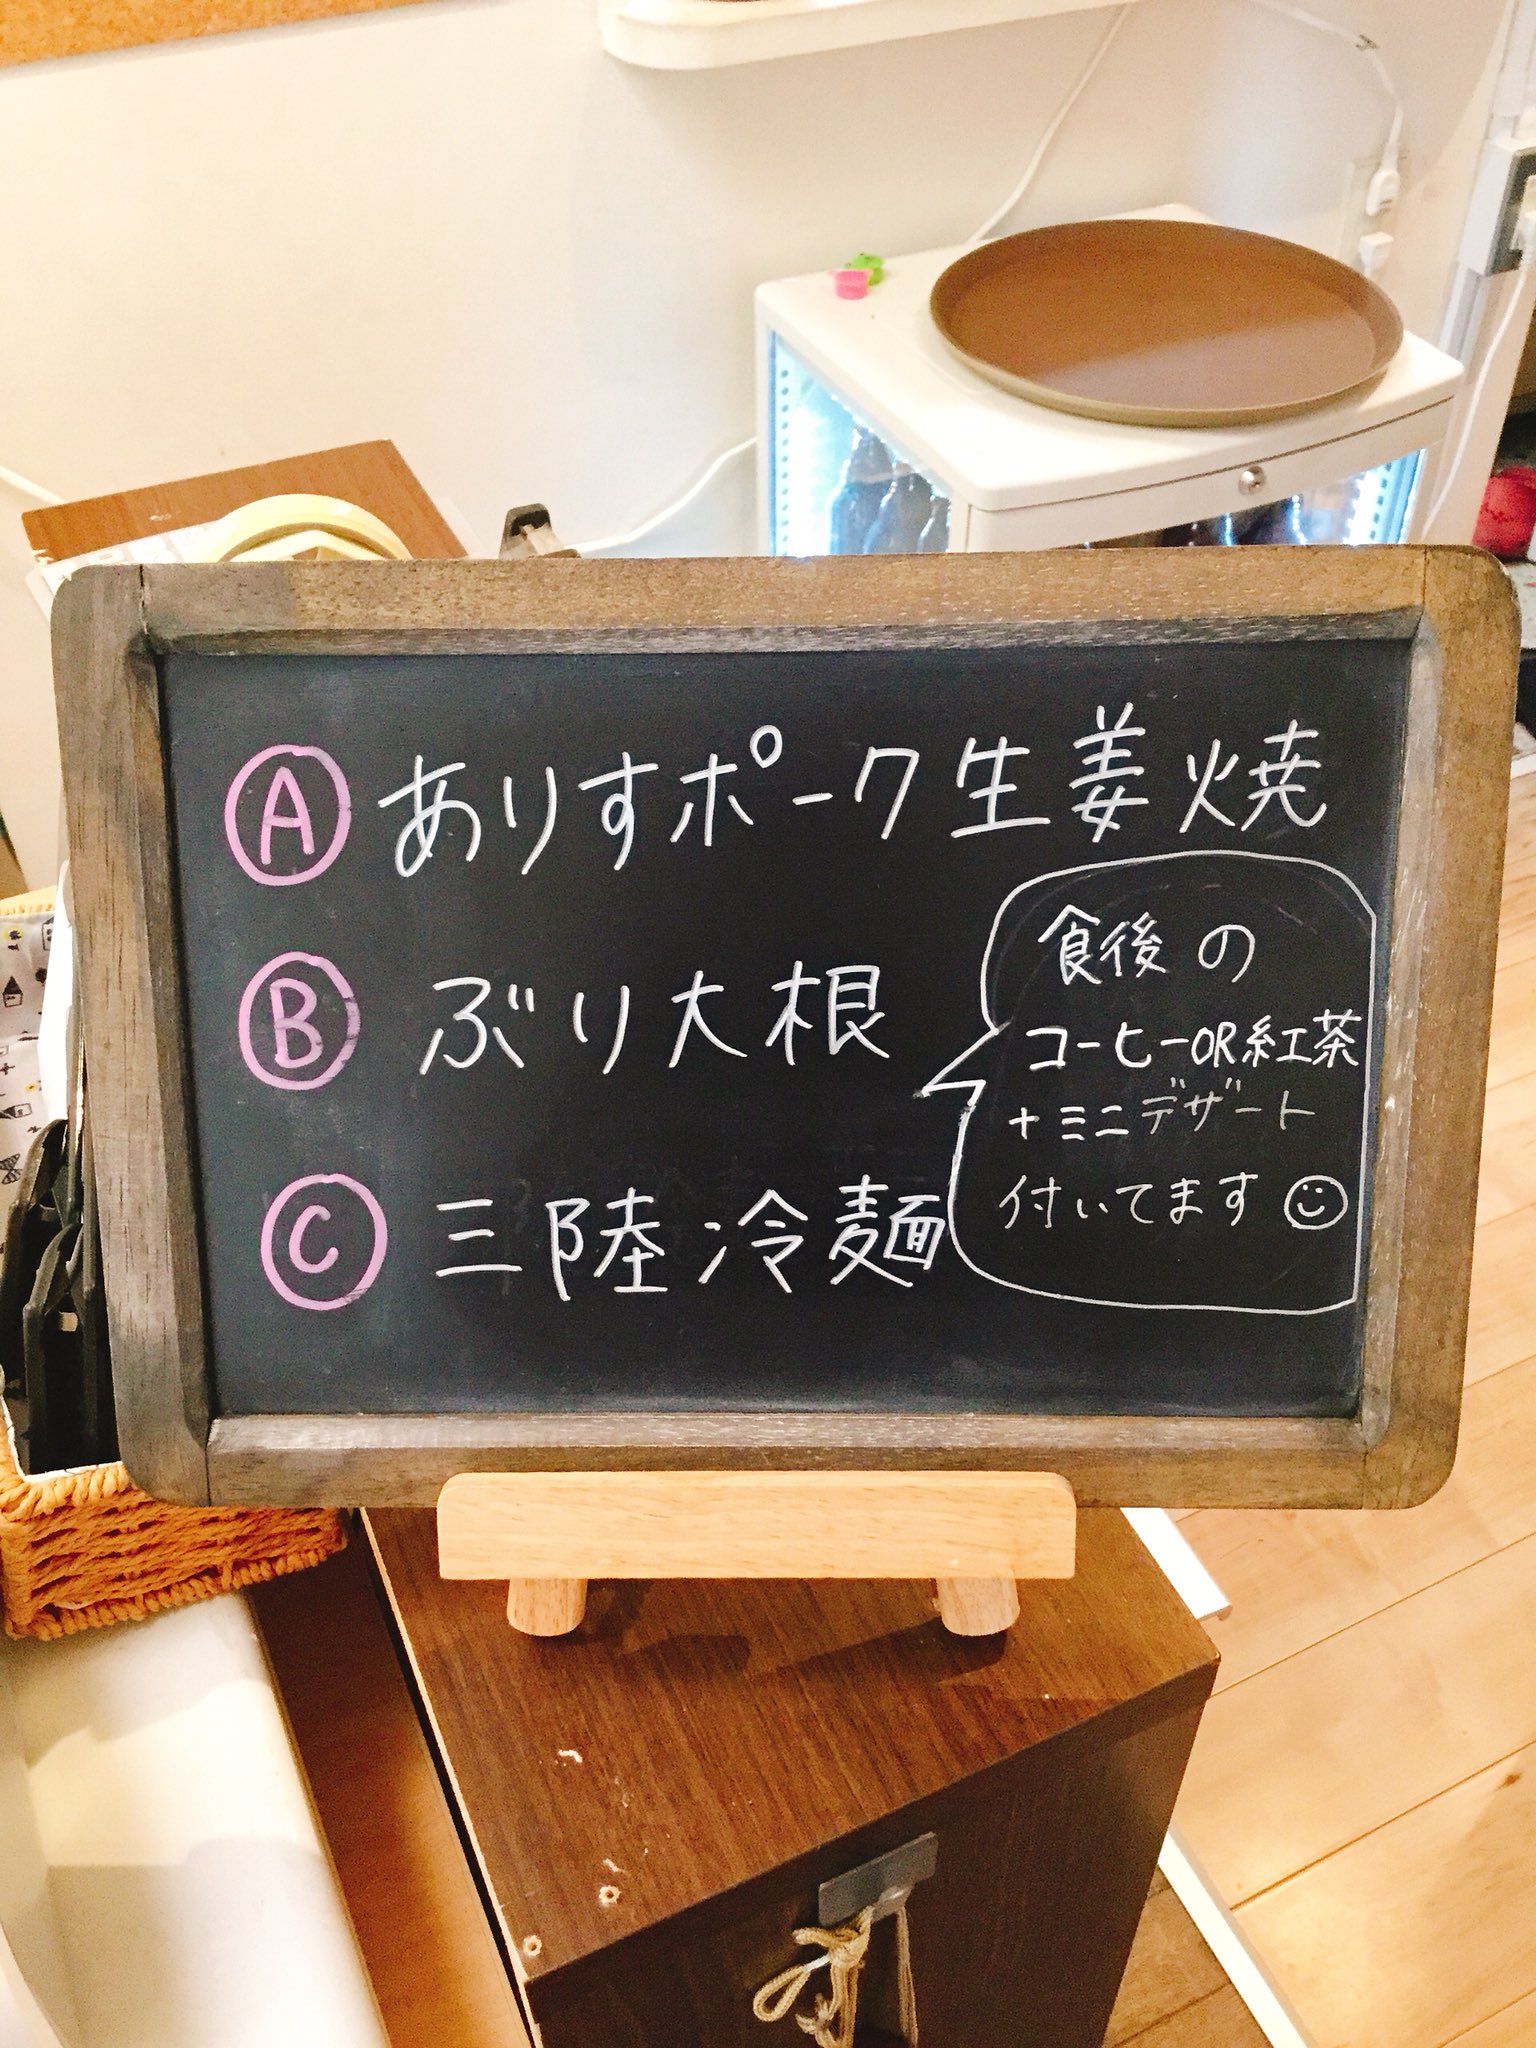 Ⓐ ありすポーク生姜焼
Ⓑ ぶり大根
Ⓒ 三陸冷麺
食後の
コーヒーOR紅茶
+ミニデザート
付いてます☺